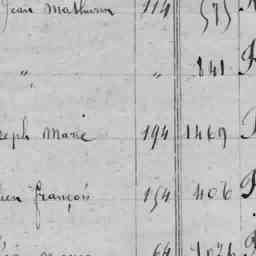 Jean Mathurin 114 575
" " 841
seph Marie 194 1469
ien françois 154 406
64